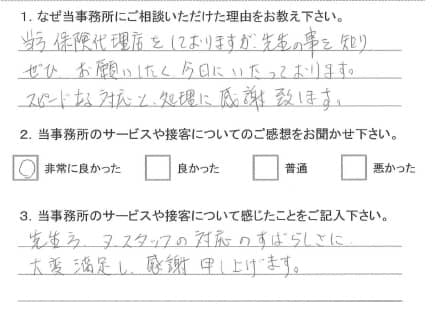 1. なぜ当事務所にご相談いただけた理由をお教え下さい。
当方 保険代理店をしておりますが、先生の事を知り
ぜひ お願いしたく、今日にいたっております。
スピードある対応と、処理に感謝致します。
2. 当事務所のサービスや接客についてのご感想をお聞かせ下さい。
○ 非常に良かった 良かった 普通 悪かった
3. 当事務所のサービスや接客について感じたことをご記入下さい。
先生方、スタッフの対応のすばらしさに
大変満足し、感謝申し上げます。